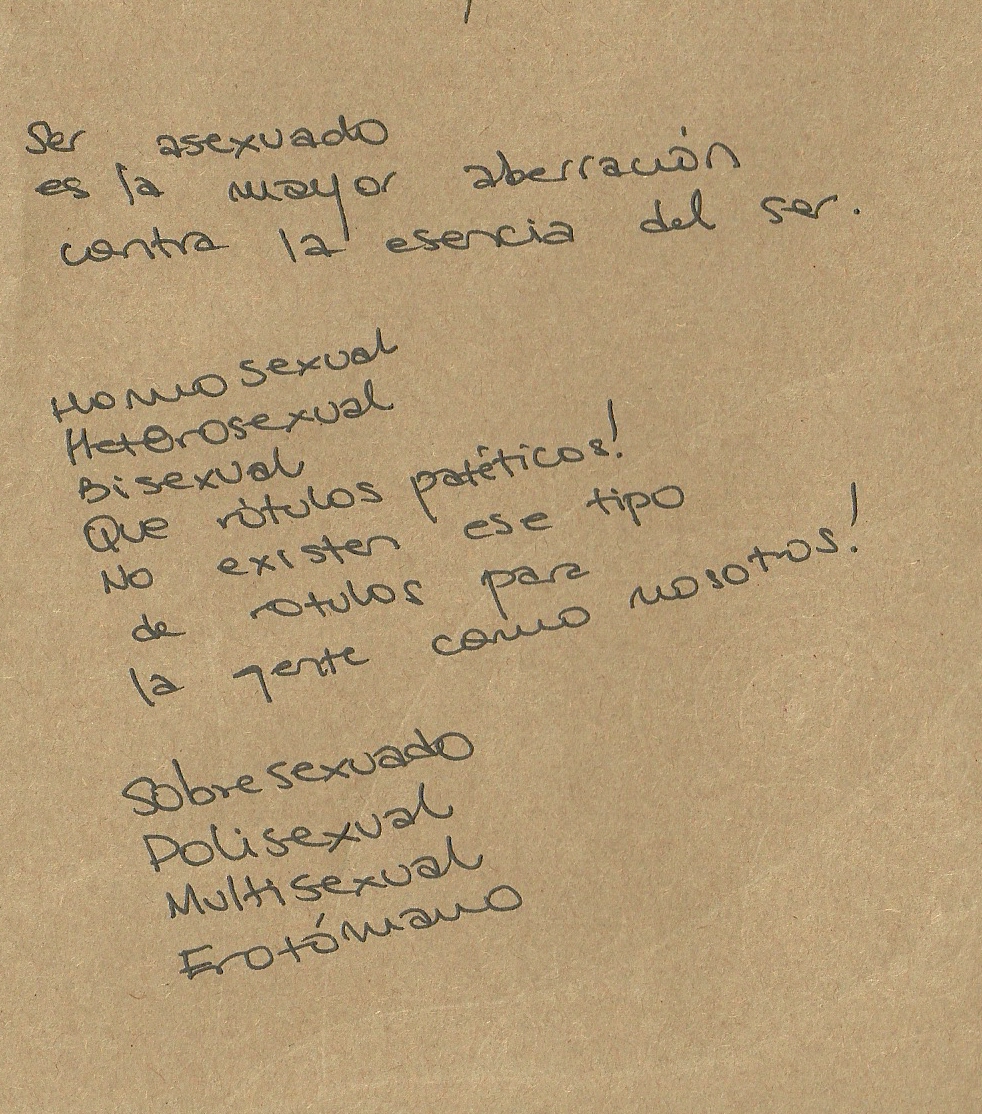 Ser asexuado
es la mayor aberración
contra la esencia del ser.
Homosexual
Heterosexual
Bisexual
Que rótulos patéticos!
No existen ese tipo
de rotulos para
la gente como nosotros!
Sobresexuado
Polisexual
Multisexual
Erotómano